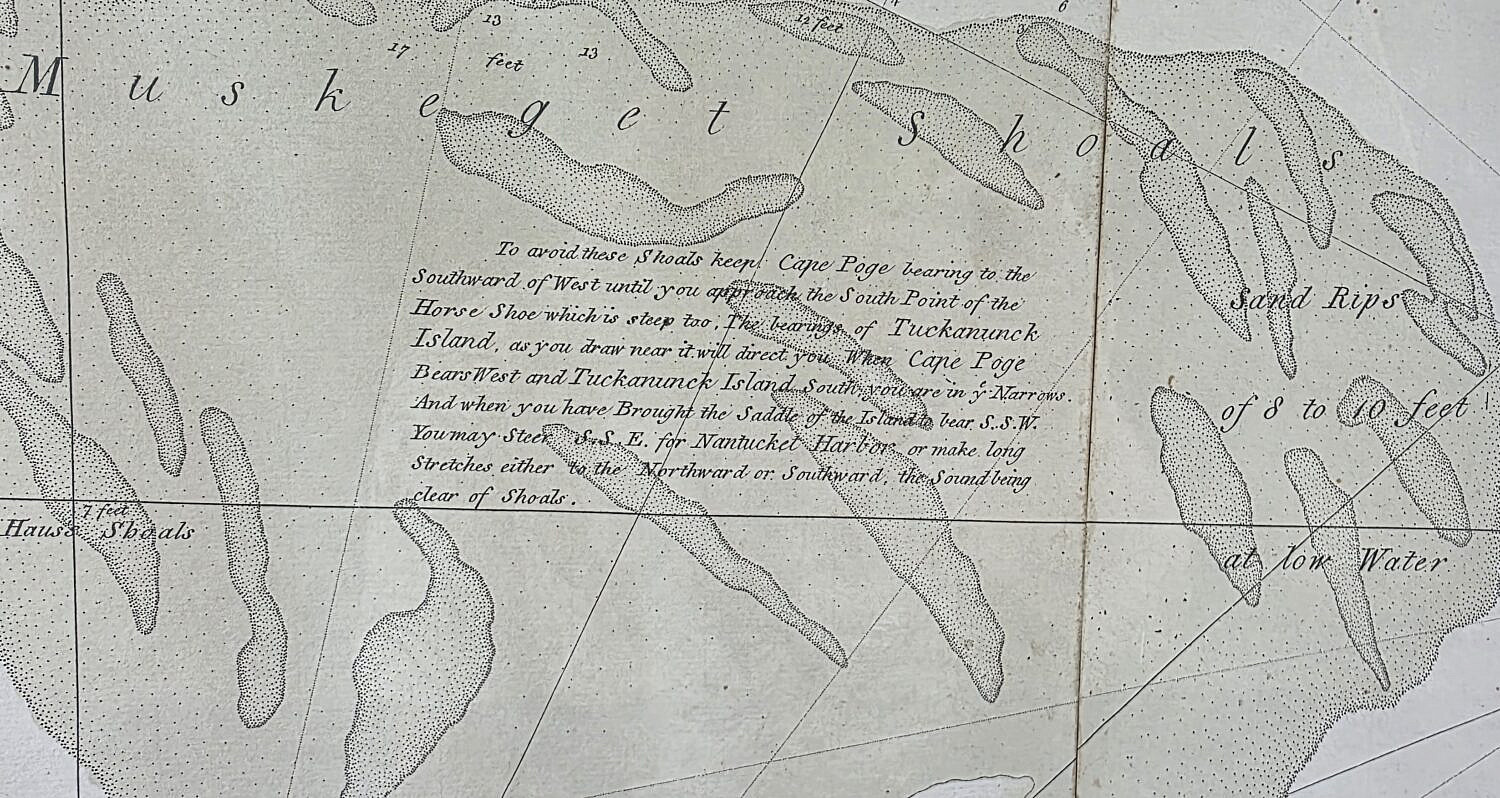 13
12 feet
6
17
feet
13
Muskeget Shoals
To avoid these Shoals keep Cape Poge bearing to the
Southward of West until you approach the South Point of the
Horse Shoe which is steep too, The bearings of Tuckanunck
Island, as you draw near it will direct you When Cape Poge
Bears West and Tuckanunck Island South, you are in yͤ Narrows.
And when you have Brought the Saddle of the Island to bear S.S.W.
You may Steer S.S.E. for Nantucket Harbor, or make long
Stretches either to the Northward or Southward, the Sound being
clear of Shoals.
Sand Rips
of 8 to 10 feet
at low Water
7 feet
Hauss Shoals